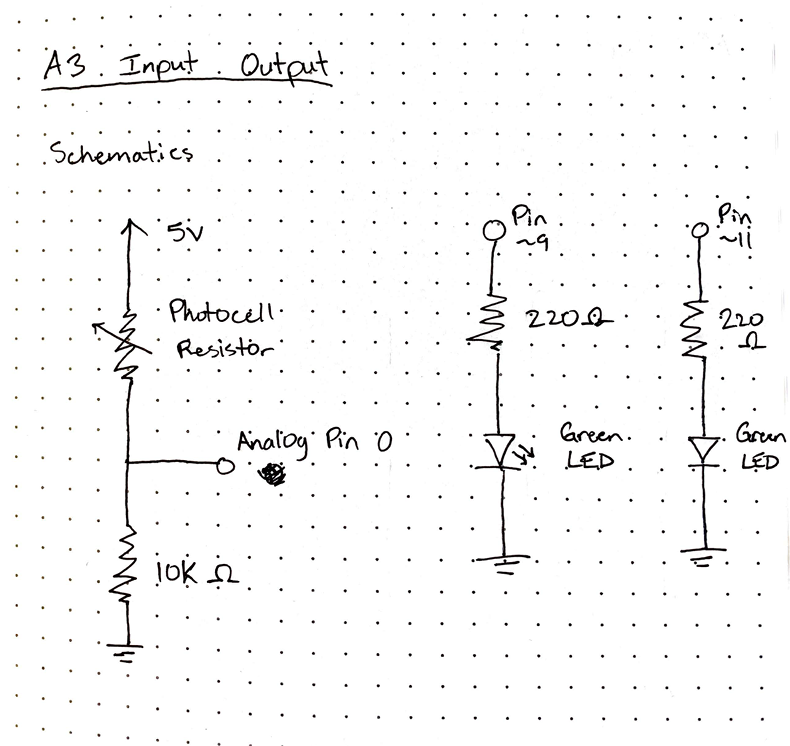 A3 Input Output
Schematics
5V
Photocell
Resistor
Analog Pin 0
10K Ω
Pin
~9
220Ω
Green
LED
Pin
~11
220
Ω
Green
LED